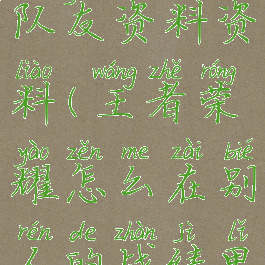 队友资料资
liào wáng zhě róng
料(王者荣
yào zěn me zài bié
耀怎么在别
rén de zhàn jì lǐ
人的战绩里